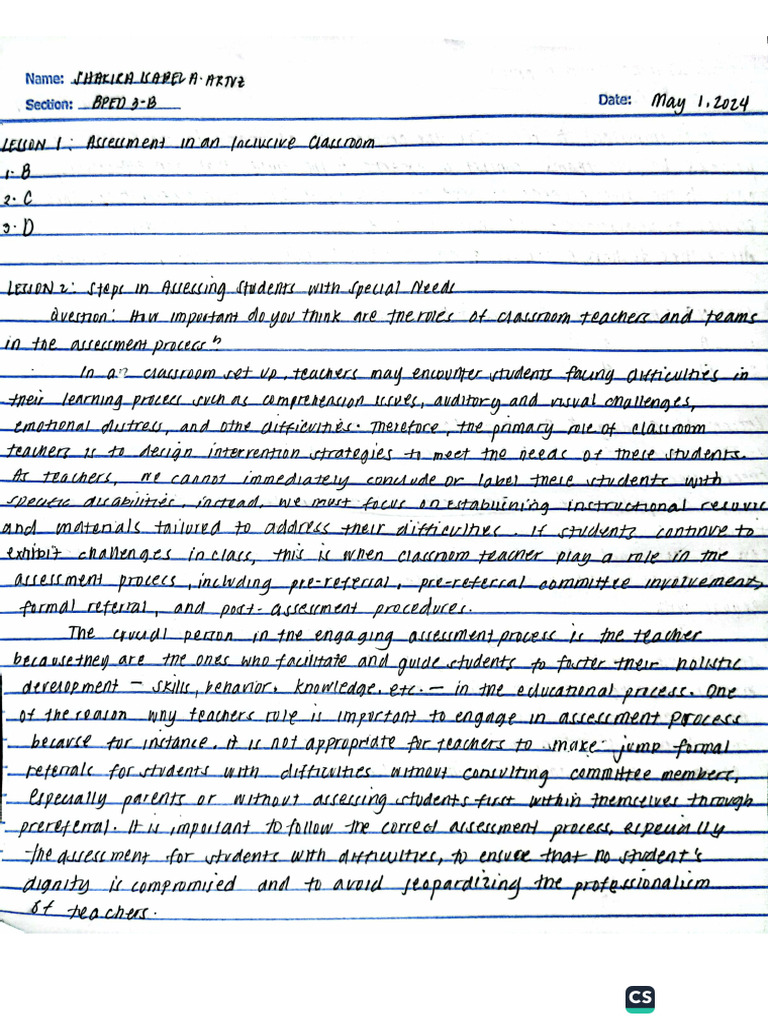 Name: SHAKIRA ISABEL A. ARTUZ
Section: BPED 3-B
Date: May 1, 2024
LESSON 1: Assessment in an Inclusive Classroom
1. B
2. C
3. D
LESSON 2: Steps in Assessing Students with Special Needs
Question: How important do you think are the roles of classroom teachers and teams
in the assessment process?
In a classroom set up, teachers may encounter students facing difficulties in
their learning process such as comprehension issues, auditory and visual challenges,
emotional distress, and othe difficulties. Therefore, the primary role of classroom
teachers is to design intervention strategies to meet the needs of these students.
As teachers, we cannot immediately conclude or label these students with
specific disabilities, instead, we must focus on establihing instructional resourc
and materials tailored to address their difficulties. If students continue to
exhibit challenges in class, this is when classroom teacher play a role in the
assessment process, including pre-referral, pre-referral committee involvement,
formal referral, and post-assessment procedures.
The crucial person in the engaging assessment process is the teacher
because they are the ones who facilitate and guide students to foster their holistic
development — skills, behavior, knowledge, etc. — in the educational process. One
of the reason why teachers role is important to engage in assessment process
because for instance, it is not appropriate for teachers to make jump formal
referrals for students with difficulties without consulting committee members,
especially parents or without assessing students first within themselves through
prereferral. It is important to follow the correct assessment process, especially
the assessment for students with difficulties, to ensure that no student's
dignity is compromised and to avoid jeopardizing the professionalism
of teachers.
CS